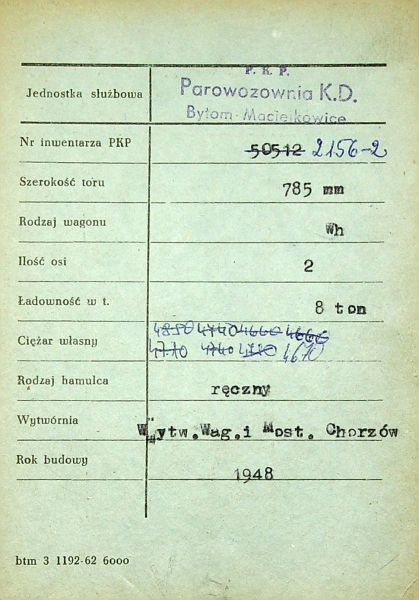 P. K. P.
Jednostka służbowa Parowozownia K.D.
Bytom-Maciejkowice
Nr inwentarza PKP 50512 2156-2
Szerokość toru 785 mm
Rodzaj wagonu Wh
Ilość osi 2
Ładowność w t. 8 ton
4850 4740 4660 4666
Ciężar własny 4710 4740 4720 4610
Rodzaj hamulca ręczny
Wytwórnia Wytw.Wag.i Most. Chorzów
Rok budowy 1948
btm 3 1192-62 6000